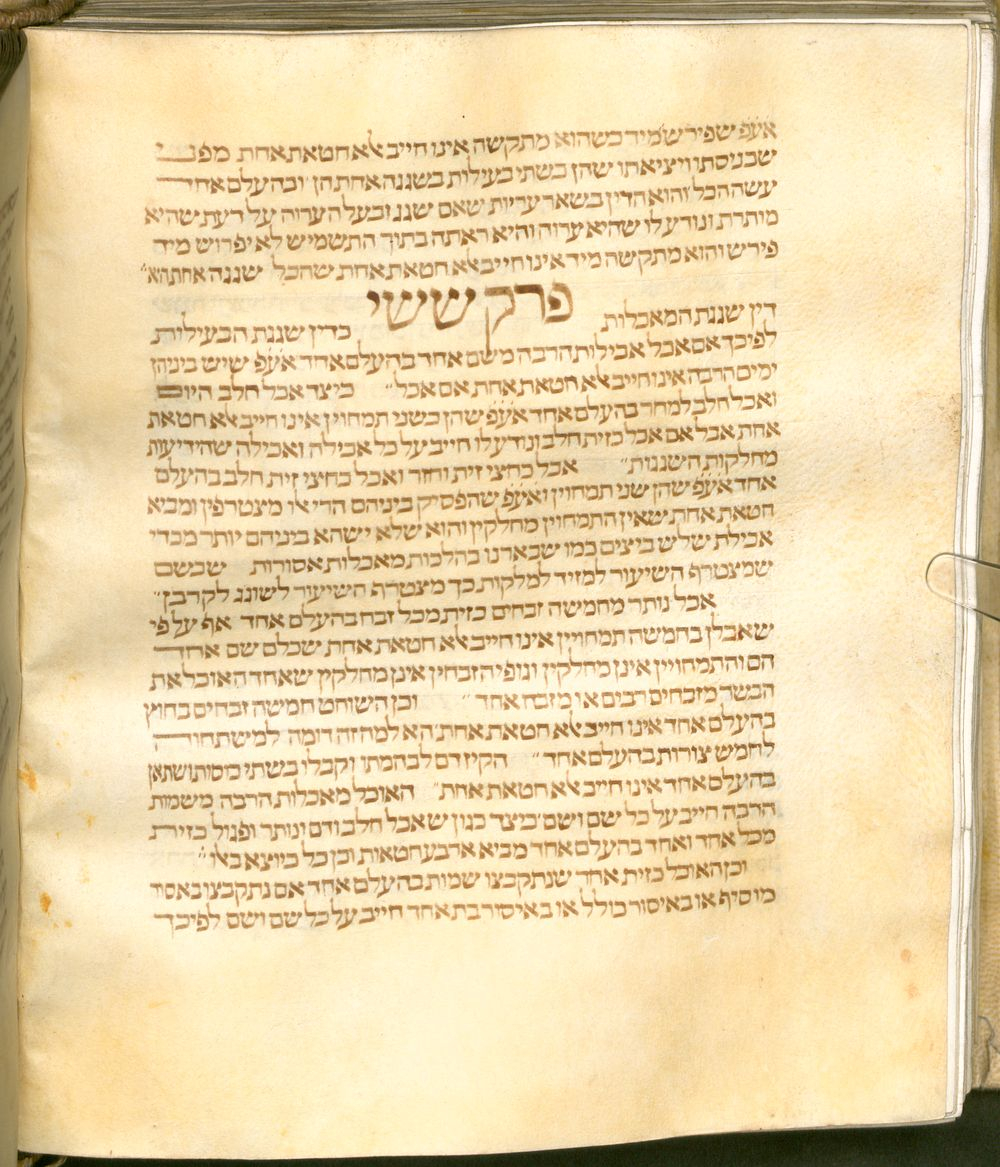 אעפ שפירש מיד כשהוא מתקשה אינו חייב אלא חטאת אחת מפני
שכניסתו ויציאתו שהן כשתי בעילות בשגגה אחת הן ובהעלם אחד
עשה הכל והוא הדין בשאר עריות שאם שגג ובעל הערוה על דעת שהיא
מותרת ונודע לו שהיא ערוה והיא ראתה בתוך התשמיש לא יפרוש מיד
פירש והוא מתקשה מיד אינו חייב אלא חטאת אחת שהכל שגגה אחת היא
פרק ששי
דין שגגת המאכלות כדין שגגת הבעילות
לפיכך אם אכל אכילות הרבה משם אחד בהעלם אחד אעפ שיש ביניהן
ימים הרבה אינו חייב אלא חטאת אחת אם אכל כיצד אכל חלב היום
ואכל חלב למחר בהעלם אחד אעפ שהן בשני תמחוין אינו חייב אלא חטאת
אחת אבל אם אכל כזית חלב ונודע לו חייב על כל אכילה ואכילה שהידיעות
מחלקות השגגות אכל כחצי זית וחזר ואכל כחצי זית חלב בהעלם
אחד אעפ שהן שני תמחוין ואעפ שהפסיק ביניהם הרי אלו מצטרפין ומביא
חטאת אחת שאין התמחוין מחלקין והוא שלא ישהא ביניהם יותר מכדי
אכילת שלש ביצים כמו שבארנו בהלכות מאכלות אסורות שכשם
שמצטרף השיעור למזיד למלקות כך מצטרף השיעור לשוגג לקרבן
אכל נותר מחמשה זבחים כזית מכל זבח בהעלם אחד אף על פי
שאכלן בחמשה תמחויין אינו חייב אלא חטאת אחת שכלם שם אחד
הם והתמחויין אינן מחלקין וגופי הזבחין אינן מחלקין שאחד האוכל את
הבשר מזבחים רבים או מזבח אחד וכן השוחט חמשה זבחים בחוץ
בהעלם אחד אינו חייב אלא חטאת אחת הא למה זה דומה למשתחוה
לחמש צורות בהעלם אחד הקיז דם לבהמתו וקבלו בשתי כוסות ושתאן
בהעלם אחד אינו חייב אלא חטאת אחת האוכל מאכלות הרבה משמות
הרבה חייב על כל שם ושם כיצד כגון שאכל חלב ודם ונותר ופגול כזית
מכל אחד ואחד בהעלם אחד מביא ארבע חטאות וכן כל כיוצא באלו
וכן האוכל כזית אחד שנתקבצו שמות בהעלם אחד אם נתקבצו באסור
מוסיף או באיסור כולל או באיסור בת אחד חייב על כל שם ושם לפיכך